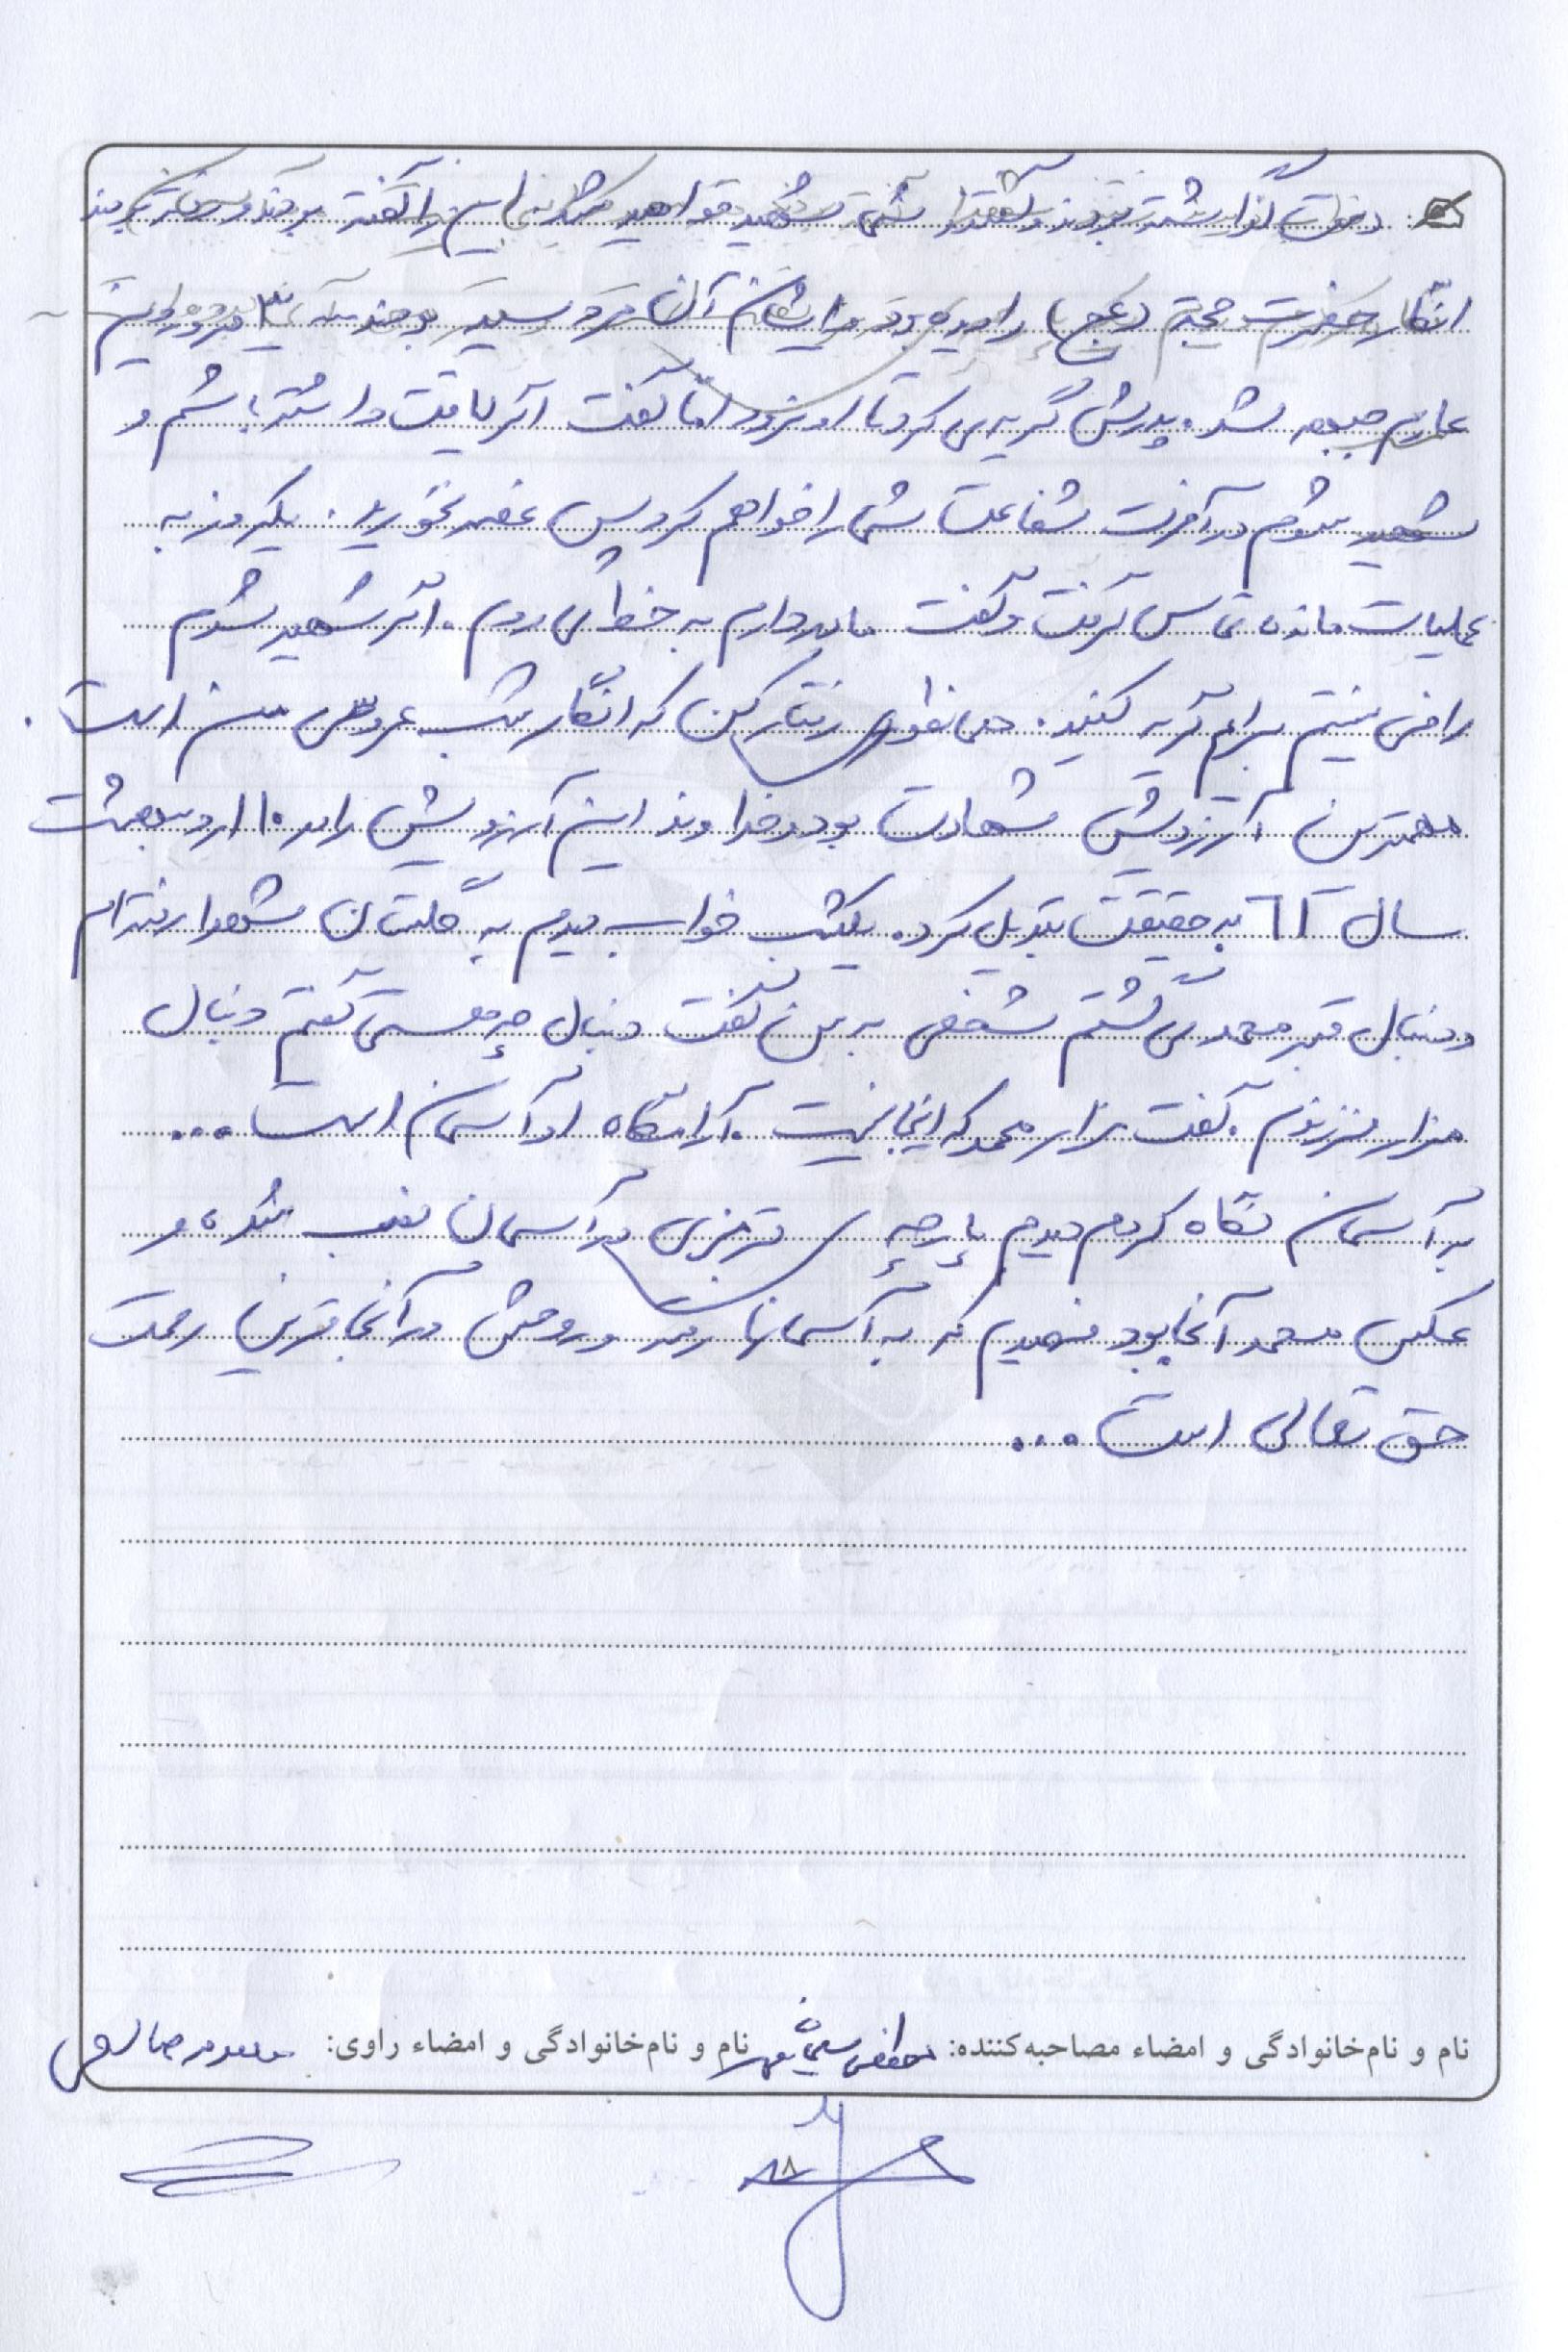 دستشان گذاشته بودند و گفتند شما شهید خواهید شد این را گفته بودند و رفته بودند
انگار حضرت حجت (عج) را دیده بود و ایشان آن مرد سید بودند
عازم جبهه شد. پدرش گریه می کرد تا او نرود اما گفت اگر لیاقت داشته باشم و
شهید شوم در آخرت شفاعت شما را خواهم کرد پس غصه نخورید. یکروز به
عملیات مانده تماس گرفت و گفت مادر دارم به خط می روم. اگر شهید شدم
راضی نیستم برایم گریه کنید. همانطوری رفتار کن که انگار شب عروسی من است.
مهمترین آرزویش شهادت بود و خداوند این آرزویش را در ۱۰ اردیبهشت
سال ۶۱ به حقیقت تبدیل کرد. یکشب خواب دیدم به گلستان شهدا رفته ام
و دنبال قبر محمد می گشتم شخصی به من گفت دنبال چه هستی گفتم دنبال
مزار فرزندم. گفت مزار محمد که اینجا نیست. آرامگاه او آسمان است...
به آسمان نگاه کردم دیدم پارچه ی قرمزی در آسمان نصب شده و
عکس محمد آنجا بود فهمیدم که به آسمانها رفته و روحش در آنجا قرین رحمت
حق تعالی است...
نام و نام‌خانوادگی و امضاء مصاحبه‌کننده: نام و نام‌خانوادگی و امضاء راوی: معصومه صالحی
۱۸